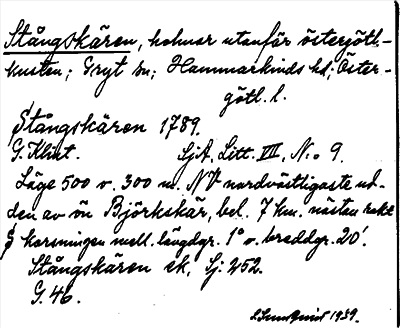 Stångskären, holmar utanför östergötl.-
kusten; Gryt sn; Hammarkinds hd; Öster-
götl. l.
Stångskären 1789.
G. Klint. SjA, Litt. VII, No 9.
Läge 500 v. 300 m. NV nordvästligaste ud-
den av ön Björkskär, bel. 7 km. nästan rakt
S korsningen mell. längdgr. 1° o. breddgr. 20'.
Stångskären ek. Sj: 252.
G. 46.
1959.